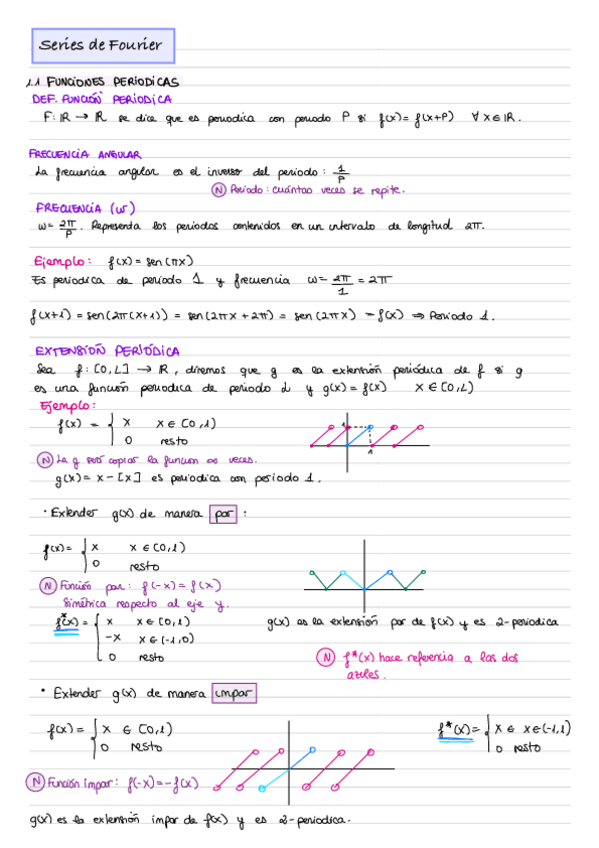 Series de Fourier
1.1 FUNCIONES PERIODICAS
DEF. FUNCIÓN PERIODICA
F: ℝ → ℝ se dice que es periodica con periodo P si f(x) = f(x+P) ∀ x ∈ ℝ.
FRECUENCIA ANGULAR
La frecuencia angular es el inverso del periodo: 1/P
(N) Periodo: cuántas veces se repite.
FRECUENCIA (w)
w = 2π/P. Representa los periodos contenidos en un intervalo de longitud 2π.
Ejemplo: f(x) = sen(πx)
Es periodica de periodo 1 y frecuencia w = 2π/1 = 2π
f(x+1) = sen(2π(x+1)) = sen(2πx + 2π) = sen(2πx) = f(x) ⇒ Periodo 1.
EXTENSIÓN PERIÓDICA
Sea f: [0,L] → ℝ, diremos que g es la extensión periódica de f si g
es una función periodica de periodo L y g(x) = f(x) x ∈ [0,L)
Ejemplo:
f(x) = { x x ∈ [0,1)
0 resto
1
1
(N) La g será copiar la función ∞ veces.
g(x) = x - [x] es periodica con periodo 1.
· Extender g(x) de manera par :
f(x) = { x x ∈ [0,1)
0 resto
(N) Función par: f(-x) = f(x)
Simétrica respecto al eje y.
f*(x) = { x x ∈ [0,1) g(x) es la extensión par de f(x) y es 2-periodica
-x x ∈ (-1,0)
0 resto
(N) f*(x) hace referencia a las dos
azules.
· Extender g(x) de manera impar
f(x) = { x ∈ [0,1)
0 resto
f*(x) = { x ∈ x ∈ (-1,1)
0 resto
(N) Función impar: f(-x) = -f(x)
g(x) es la extensión impar de f(x) y es 2-periodica.